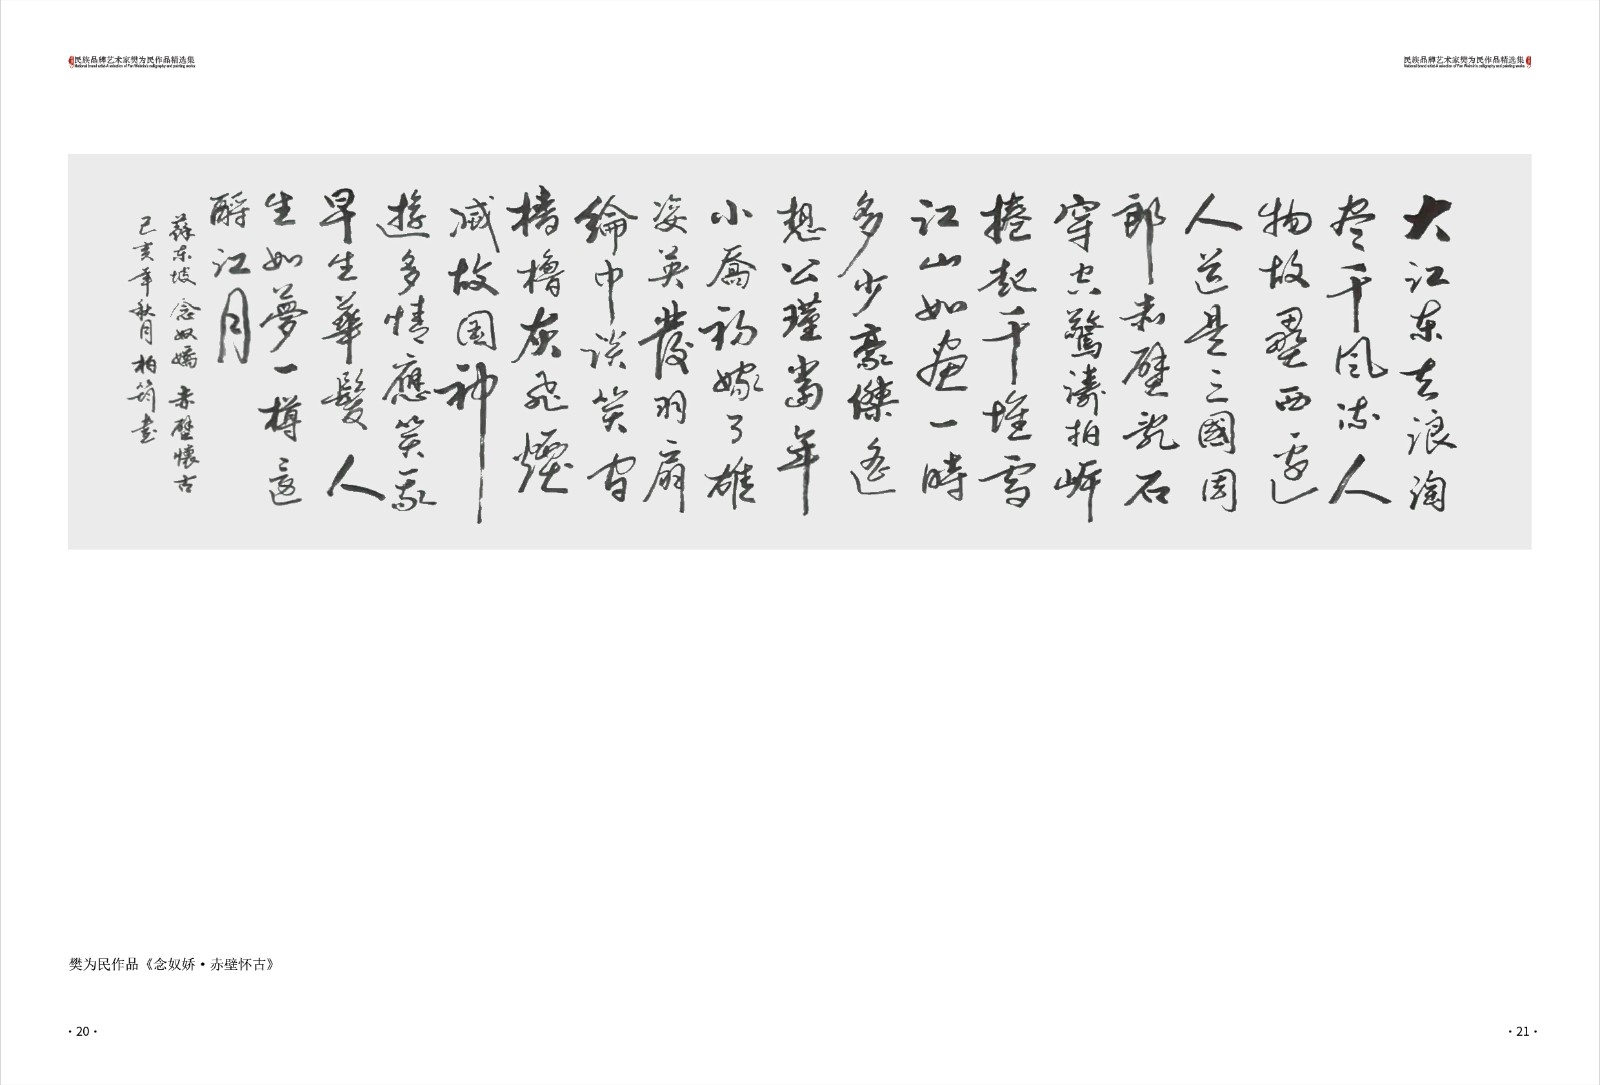 民族品牌艺术家樊为民作品精选集
National brand artist·A selection of Fan Weimin's calligraphy and painting works
民族品牌艺术家樊为民作品精选集
National brand artist·A selection of Fan Weimin's calligraphy and painting works
大江东去浪淘
尽千风流人
物故壘西邊
人道是三國周
郎赤壁乱石
穿空驚濤拍岸
捲起千堆雪
江山如画一時
多少豪傑遙
想公瑾當年
小喬初嫁了雄
姿英發羽扇
綸巾谈笑间
檣櫓灰飞煙
滅故国神
遊多情應笑我
早生華髮人
生如夢一樽還
酹江月
蘇东坡 念奴嬌 赤壁懷古
己亥年秋月 柏筠書
樊为民作品《念奴娇·赤壁怀古》
·20·
·21·